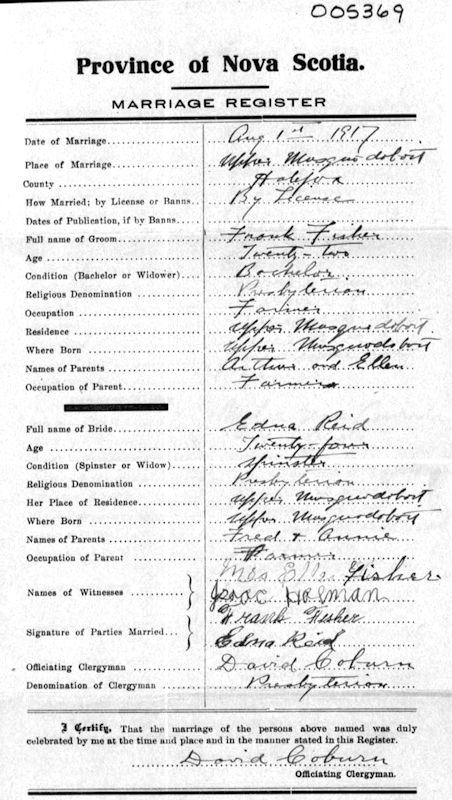 005369
Province of Nova Scotia.
MARRIAGE REGISTER
Date of Marriage Aug 1st 1917
Place of Marriage Upper Musquodoboit
County Halifax
How Married; by License or Banns By License
Dates of Publication, if by Banns
Full name of Groom Frank Fisher
Age Twenty-two
Condition (Bachelor or Widower) Bachelor
Religious Denomination Presbyterian
Occupation Farmer
Residence Upper Musquodoboit
Where Born Upper Musquodoboit
Names of Parents Arthur and Ellen
Occupation of Parent Farmer
Full name of Bride Edna Reid
Age Twenty-four
Condition (Spinster or Widow) Spinster
Religious Denomination Presbyterian
Her Place of Residence Upper Musquodoboit
Where Born Upper Musquodoboit
Names of Parents Fred & Annie
Occupation of Parent Farmer
Mrs Fisher
Names of Witnesses
Isaac Holman
Frank Fisher
Signature of Parties Married
Edna Reid
Officiating Clergyman David Coburn
Denomination of Clergyman Presbyterian
I Certify, That the marriage of the persons above named was duly
celebrated by me at the time and place and in the manner stated in this Register.
David Coburn
Officiating Clergyman.